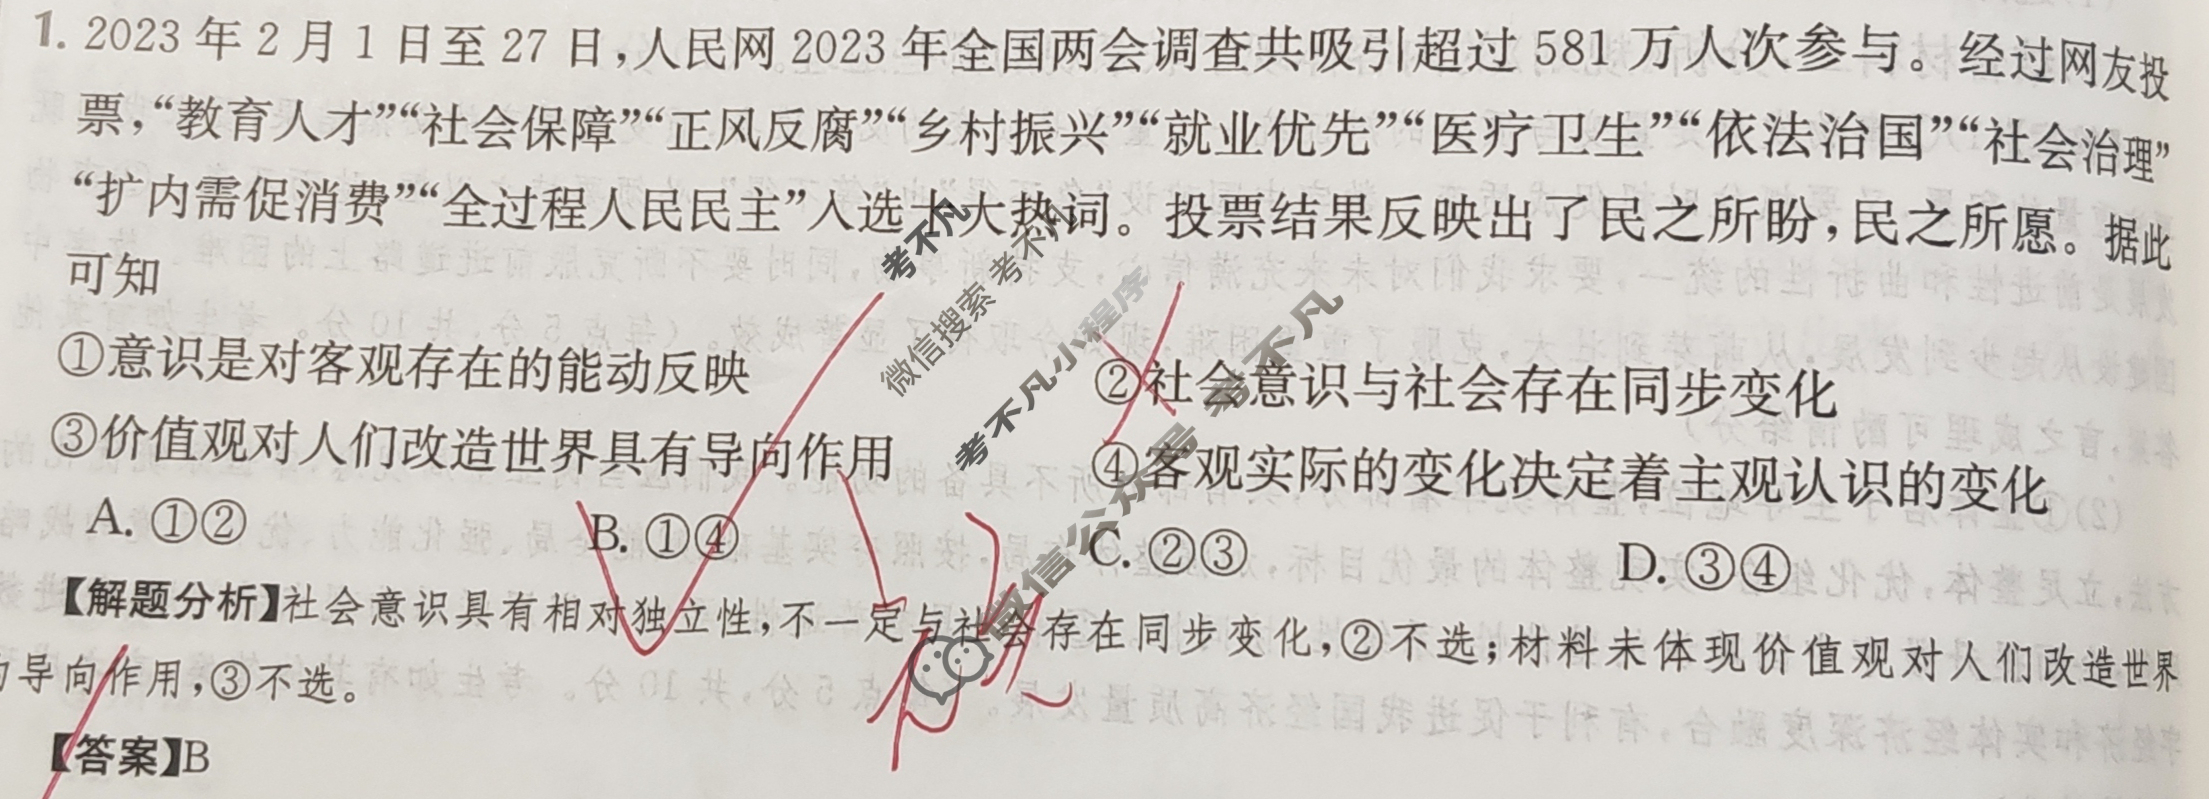 1. 2023 年 2 月 1 日至 27 日,人民网 2023 年全国两会调查共吸引超过 581 万人次参与。经过网友投
票,“教育人才”“社会保障”“正风反腐”“乡村振兴”“就业优先”“医疗卫生”“依法治国”“社会治理”
“扩内需促消费”“全过程人民民主”入选十大热词。投票结果反映出了民之所盼,民之所愿。据此
可知
①意识是对客观存在的能动反映 ②社会意识与社会存在同步变化
③价值观对人们改造世界具有导向作用 ④客观实际的变化决定着主观认识的变化
A. ①② B. ①④ C. ②③ D. ③④
【解题分析】社会意识具有相对独立性,不一定与社会存在同步变化,②不选;材料未体现价值观对人们改造世界
导向作用,③不选。
【答案】B
考不凡
微信搜索 考不凡
考不凡小程序
微信公众号 考不凡